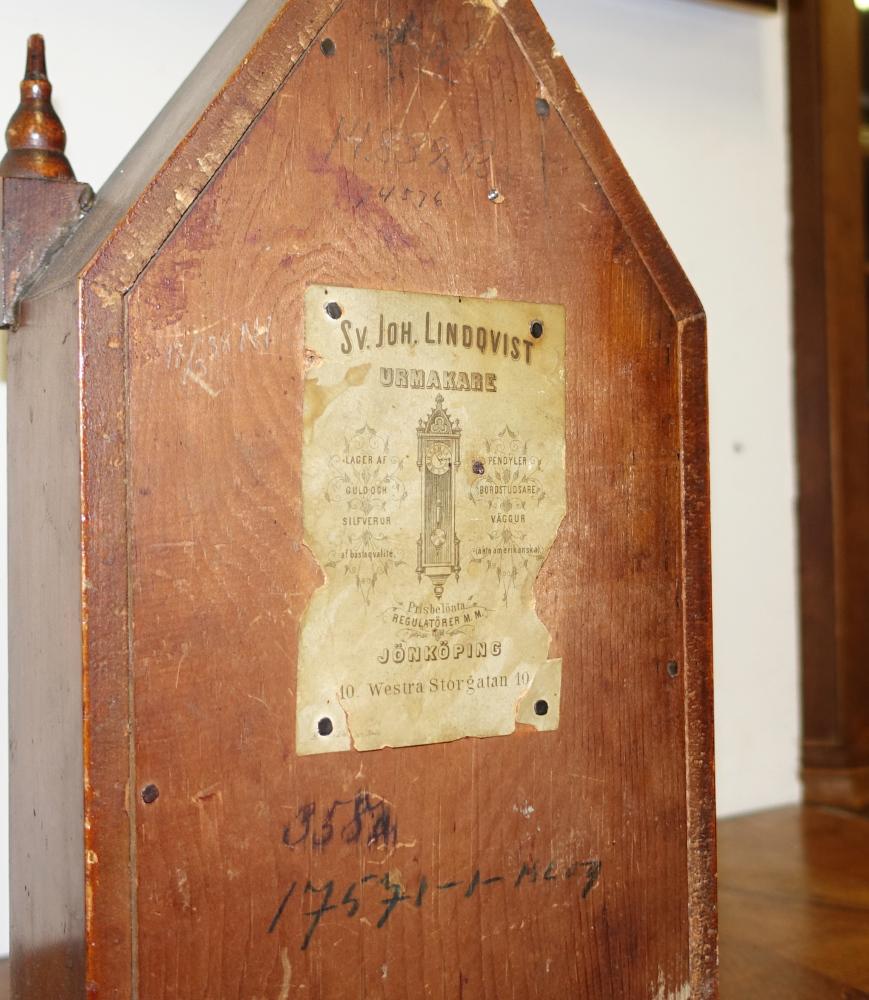 4576
SV. JOH. LINDQVIST
URMAKARE
LAGER AF
GULD OCH
SILFVERUR
af bästa qvalité.
PENDYLER
BORDSTUDSARE
VÄGGUR
(äkta amerikanska)
Prisbelönta
REGULATÖRER M. M.
JÖNKÖPING
10. Westra Storgatan 10
358
17571-1-